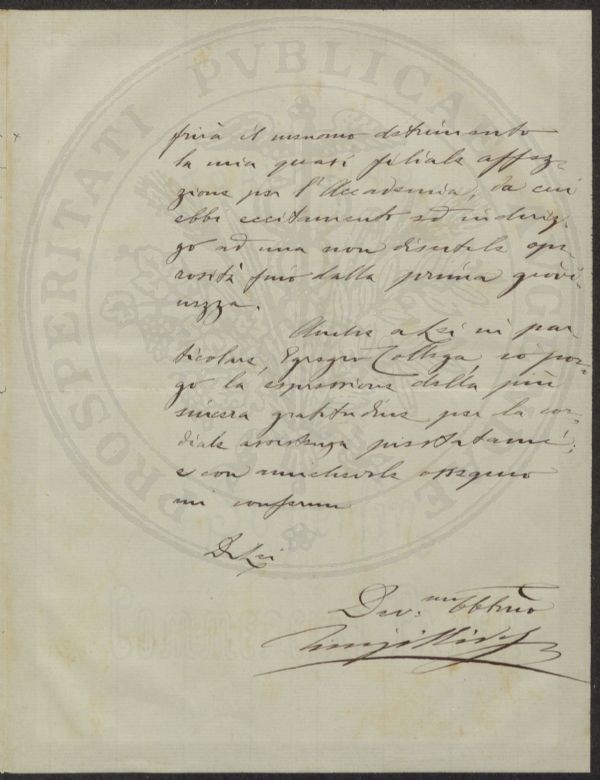 PROSPERITATI PVBLICAE AVGENDAE
frirà il menomo detrimento
la mia quasi filiale affe-
zione per l'Accademia, da cui
ebbi eccitamento ed indiriz-
zo ad una non disutile ope-
rosità fino dalla prima giovi-
nezza.
Anche a Lei in par
ticolare, Egregio Collega, io por-
go la espressione della più
sincera gratitudine per la cor-
diale assistenza prestatami;
e con amichevole ossequio
mi confermo
Di Lei
Dev.mo Obbmo
Luigi